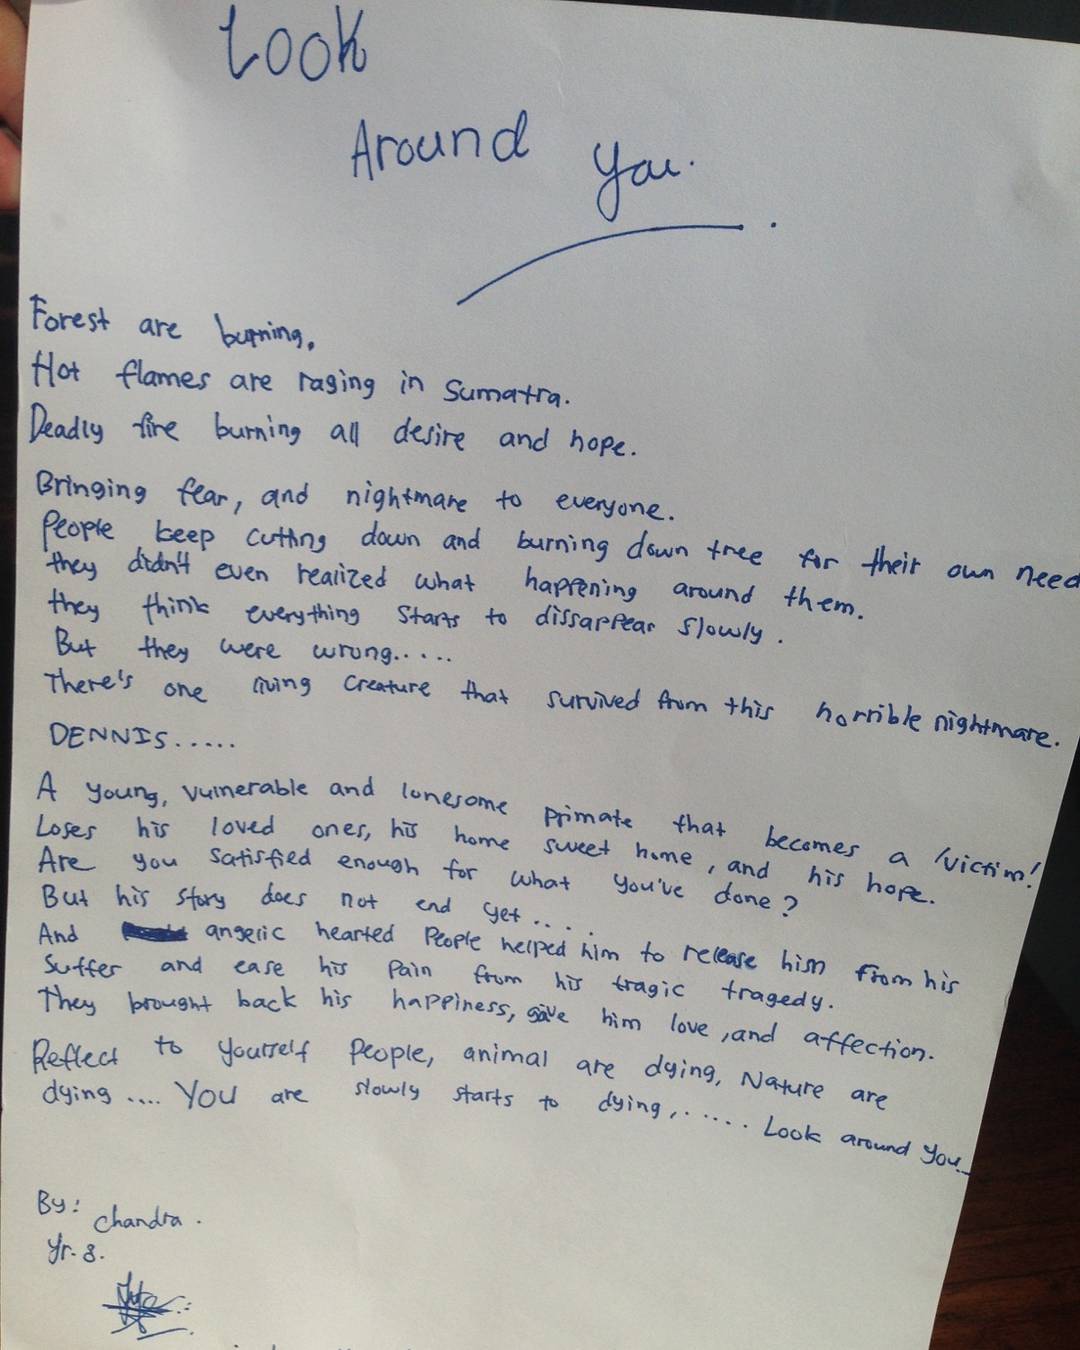 Look
Around You.
Forest are burning.
Hot flames are raging in Sumatra.
Deadly fire burning all desire and hope.
Bringing fear, and nightmare to everyone.
People keep cutting down and burning down tree for their own need
they didn't even realized what happening around them.
they think everything starts to dissappear slowly.
But they were wrong.....
There's one living creature that survived from this horrible nightmare.
DENNIS.....
A young, vulnerable and lonesome primate that becomes a victim!
Loses his loved ones, his home sweet home, and his hope.
Are you satisfied enough for what you've done?
But his story does not end yet....
And angelic hearted People helped him to release him from his
suffer and ease his pain from his tragic tragedy.
They brought back his happiness, give him love, and affection.
Reflect to yourself people, animal are dying, Nature are
dying.... You are slowly starts to dying,...... Look around you..
By: Chandra.
Yr. 8.